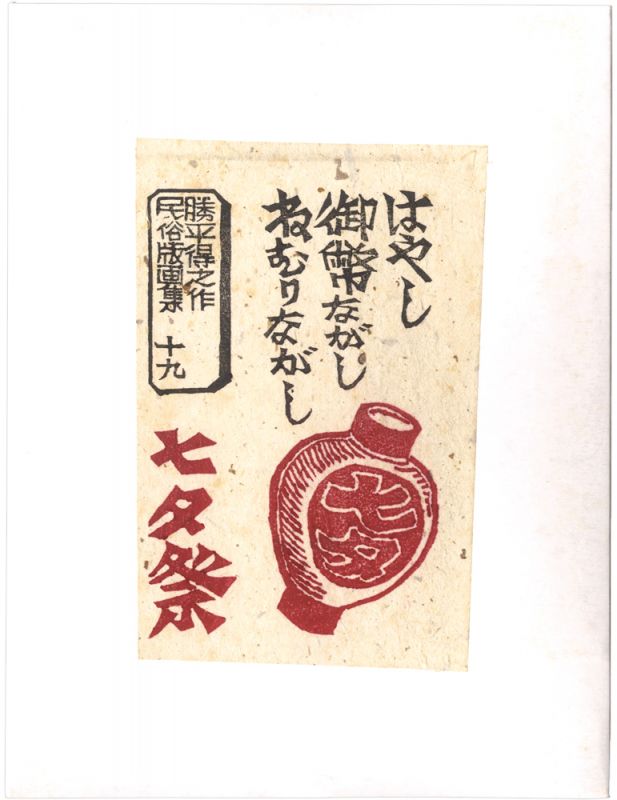 はやし
御幣ながし
ねむりながし
七夕
勝平得之作
民俗版画集 十九
七夕祭